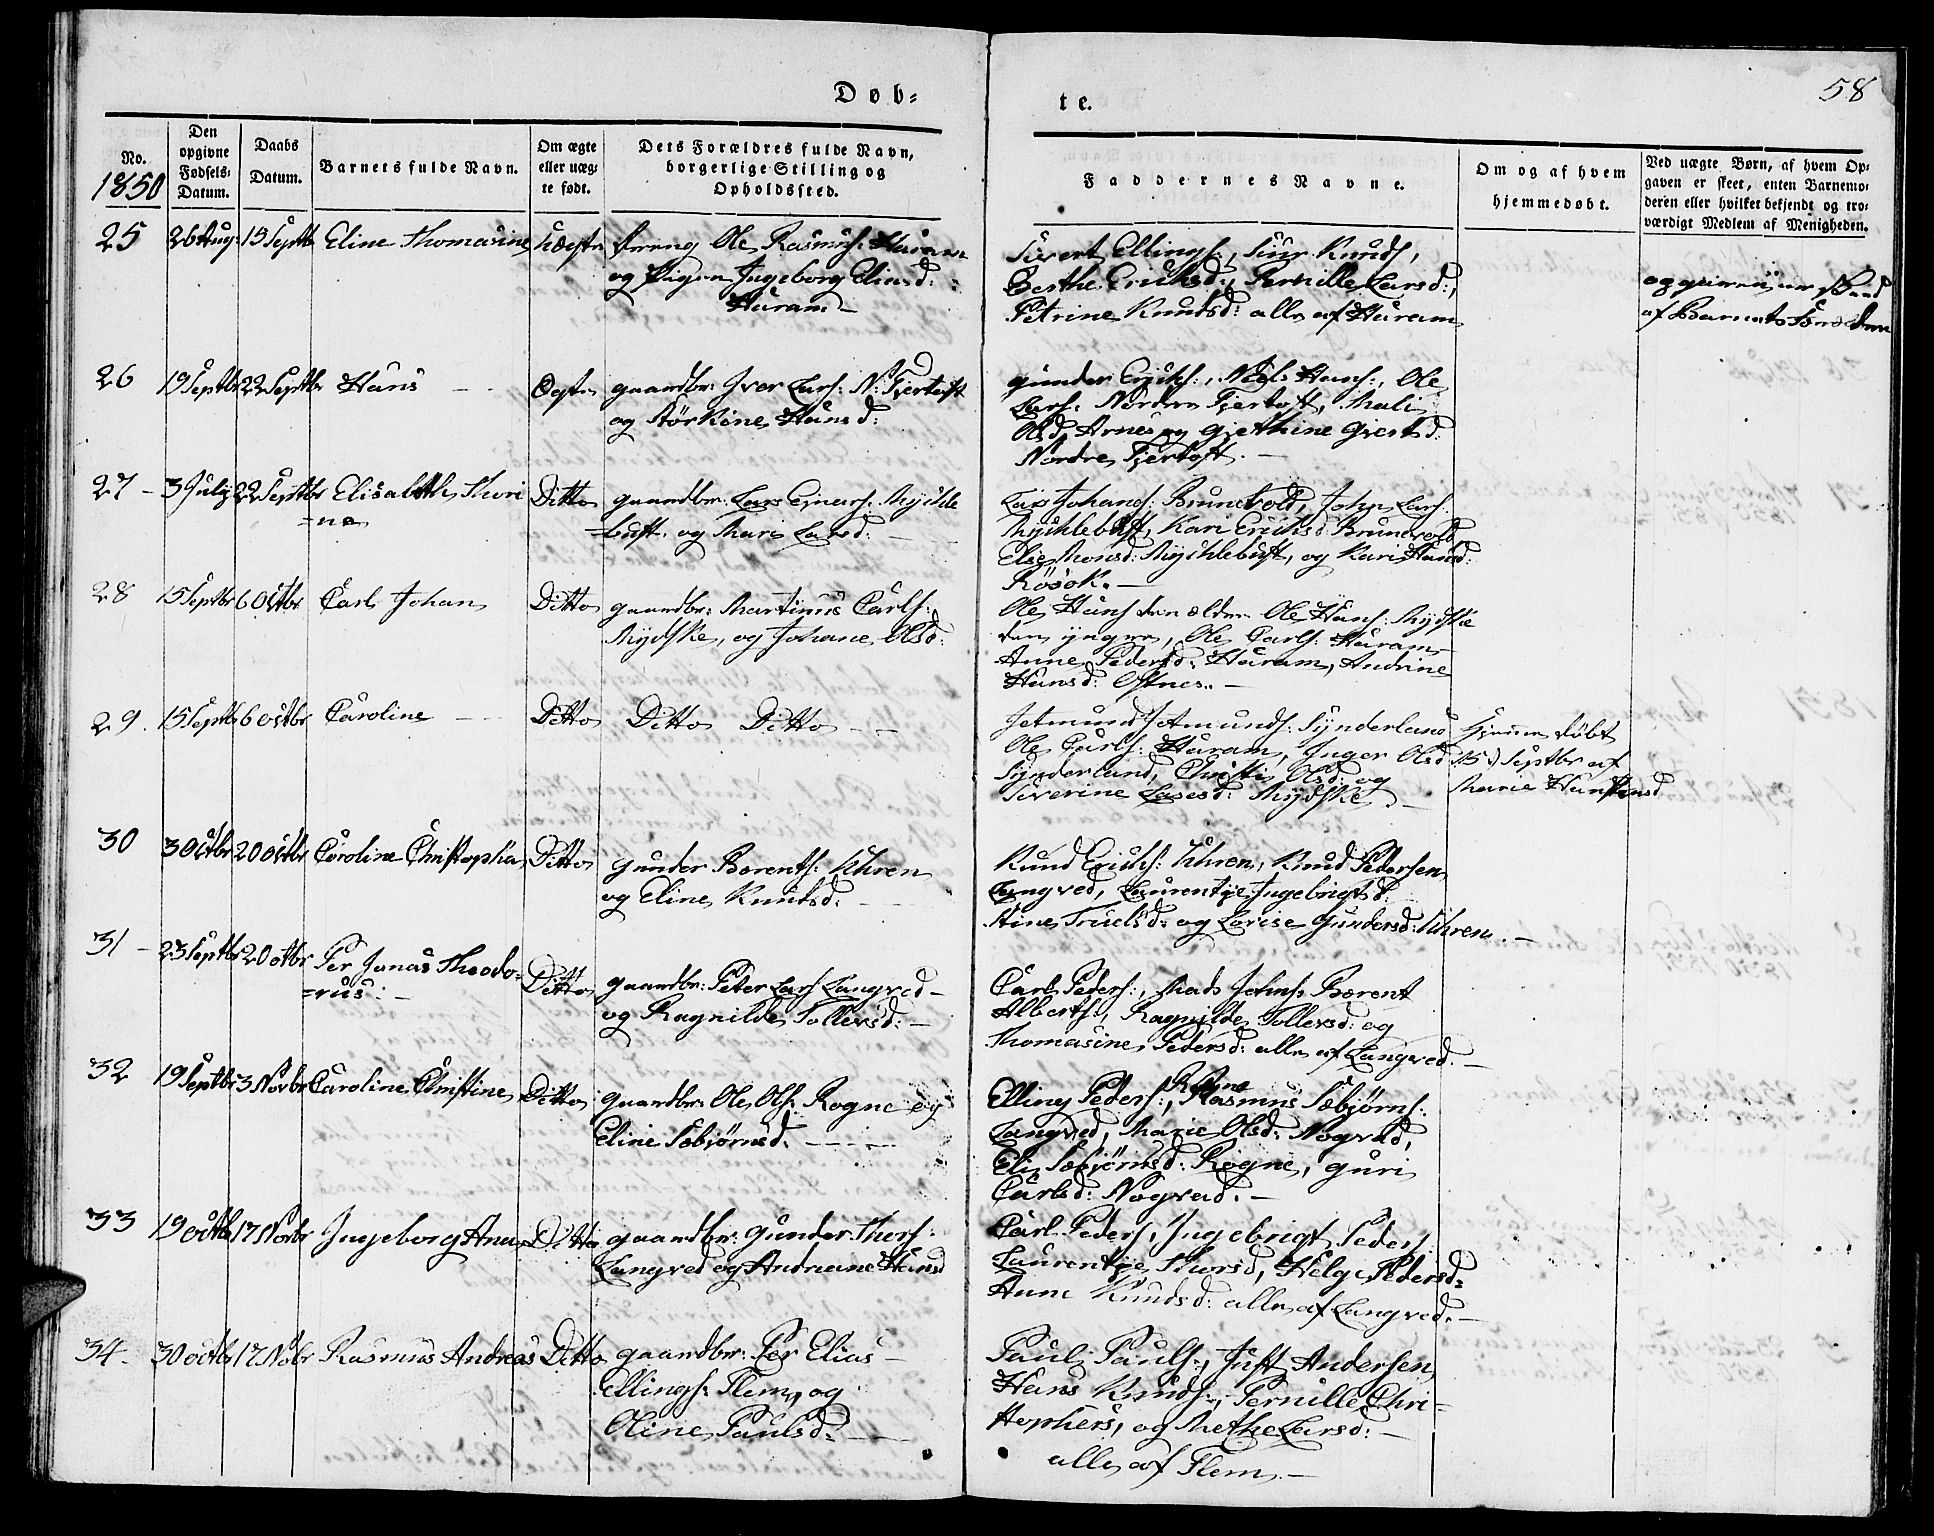 Døb=
te.
58
No.
1850
Den
opgivne
Fødsels=
Datum.
Daabs
Datum.
Barnets fulde Navn.
Om ægte
eller uæg=
te født.
Dets Forældres fulde Navn,
borgerlige Stilling og
Opholdssted.
Faddernes Navne.
Om og af hvem
hjemmedøbt.
Ved uægte Børn, af hvem Op=
gaven er skeet, enten Barnemo=
deren eller hvilket bekjendt og tro=
værdigt Medlem af Menigheden.
25 26 Aug: 15 Septbr Eline Thomasine Uægte Dreng Ole Rasmus: Haram
og Pigen Ingeborg Eliasd:
Haram –
Sivert Ellings:, Siur Knuds,
Berthe Ericksd:, Pernille Larsd:,
Petrine Knutsd: alle af Haram
af Barnets
26 19 Septbr 22 Septbr Hans – Ægte gaardbr: Iver Lars: N: Fjertoft
og Størkine Hansd:
gunder Ericks:, Niels Hans:, Ole
Lars: Nordre Fjertoft, Mali
Olsd Arnes og Gjethine Giertsd:
Nordre Fjertoft. –
27 – 3 July 22 Septbr Elisabeth Thori
=ne
Ditto gaardbr: Lars Einars: Myckle
=bust. og Mari Larsd: –
Lars Johans: Brunvold, John Lars:
Mycklebust, Kari Ericksd: Brunvold
Else Monsd: Mycklebust, og Kari Hansd:
Røsok. –
28 15 Septbr 6 Octbr Carl Johan Ditto gaardbr: Martinus Carls:
Mydske, og Johane Olsd:
Ole Hans den ældre Ole Hans: Mydske
den yngre, Ole Carls: Haram
Anne Pedersd: Haram, Andrine
Hansd: Ostnes. –
29. 15 Septbr 6 octbr Caroline – Ditto Ditto Ditto –
Jetmund Jetmunds: Synderland
Ole Carls: Haram, Inger Olsd
Synderland, Christi Olsd: og
Siverine Lasesd: Mydske. –
Hjemme døbt
15) Septbr af
Marie
30 3 Octbr 20 Octbr Caroline Christophia Ditto gunder Barents: Uhren
og Eline Knutsd: –
Knud Ericks: Uhren, Knud Pedersen
Langved, Laurentze Ingebrigtsd:
Stine Truelsd: og Lovise Gundersd: Uhren. –
31 – 23 Septbr 20 otbr Per Jonas Theodo=
=rus: –
Ditto gaardbr: Peter Lars Langved –
og Ragnilde Tollevsd: –
Carl Peders:, Mads Johns: Barent
Alberts:, Ragnilde Tollevsd: og
Thomasine Pedersd: alle af Langved. –
32 19 Septbr 3 Novbr Caroline Christine Ditto gaardbr: Ole Ols: Rogne og
Eline Sæbjørnsd. –
Rogne
Elling Peders:, Rasmus Sæbjørns:
Langved, Marie Olsd: Nogved,
Eli Sæbjørnsd: Rogne, guri
Carlsd: Nogved. –
33 19 octbr 17 Novbr Ingeborg Ane Ditto gaardbr: gunder Thors:
Langved og Andreane Hansd
Carl Peders, Ingebrigt Peders
Laurentze Thorsd, Helge Pedersd=
Knudsd: alle af Langved. –
34. 30 octbr 17 Nobr Rasmus Andreas Ditto gaardbr: Per Elias –
Ellings: Flem, og
Oline Paulsd: –
Paul Pauls:, Just Andersen
Hans Knuds:, Pernille Chri=
stophers, og Methe Larsd: –
alle af Flem. –